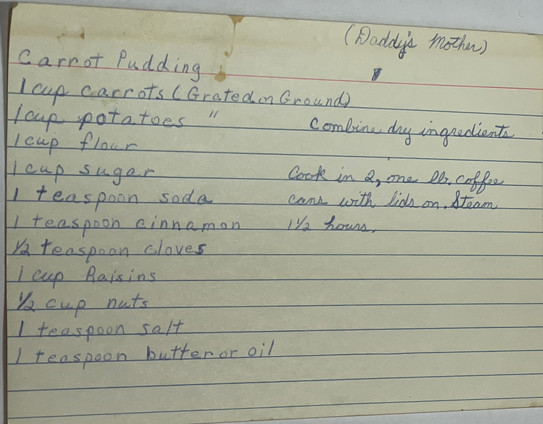 (Daddy's Mother)
Carrot Pudding
1 cup carrots (Grated or Ground)
1 cup potatoes "
Combine dry ingredients
1 cup flour
1 cup sugar
Cook in 2, one lb. coffee
1 teaspoon soda
cans with lids on. Steam
1 teaspoon cinnamon
1½ hours.
½ teaspoon cloves
1 cup Raisins
½ cup nuts
1 teaspoon salt
1 teaspoon butter or oil